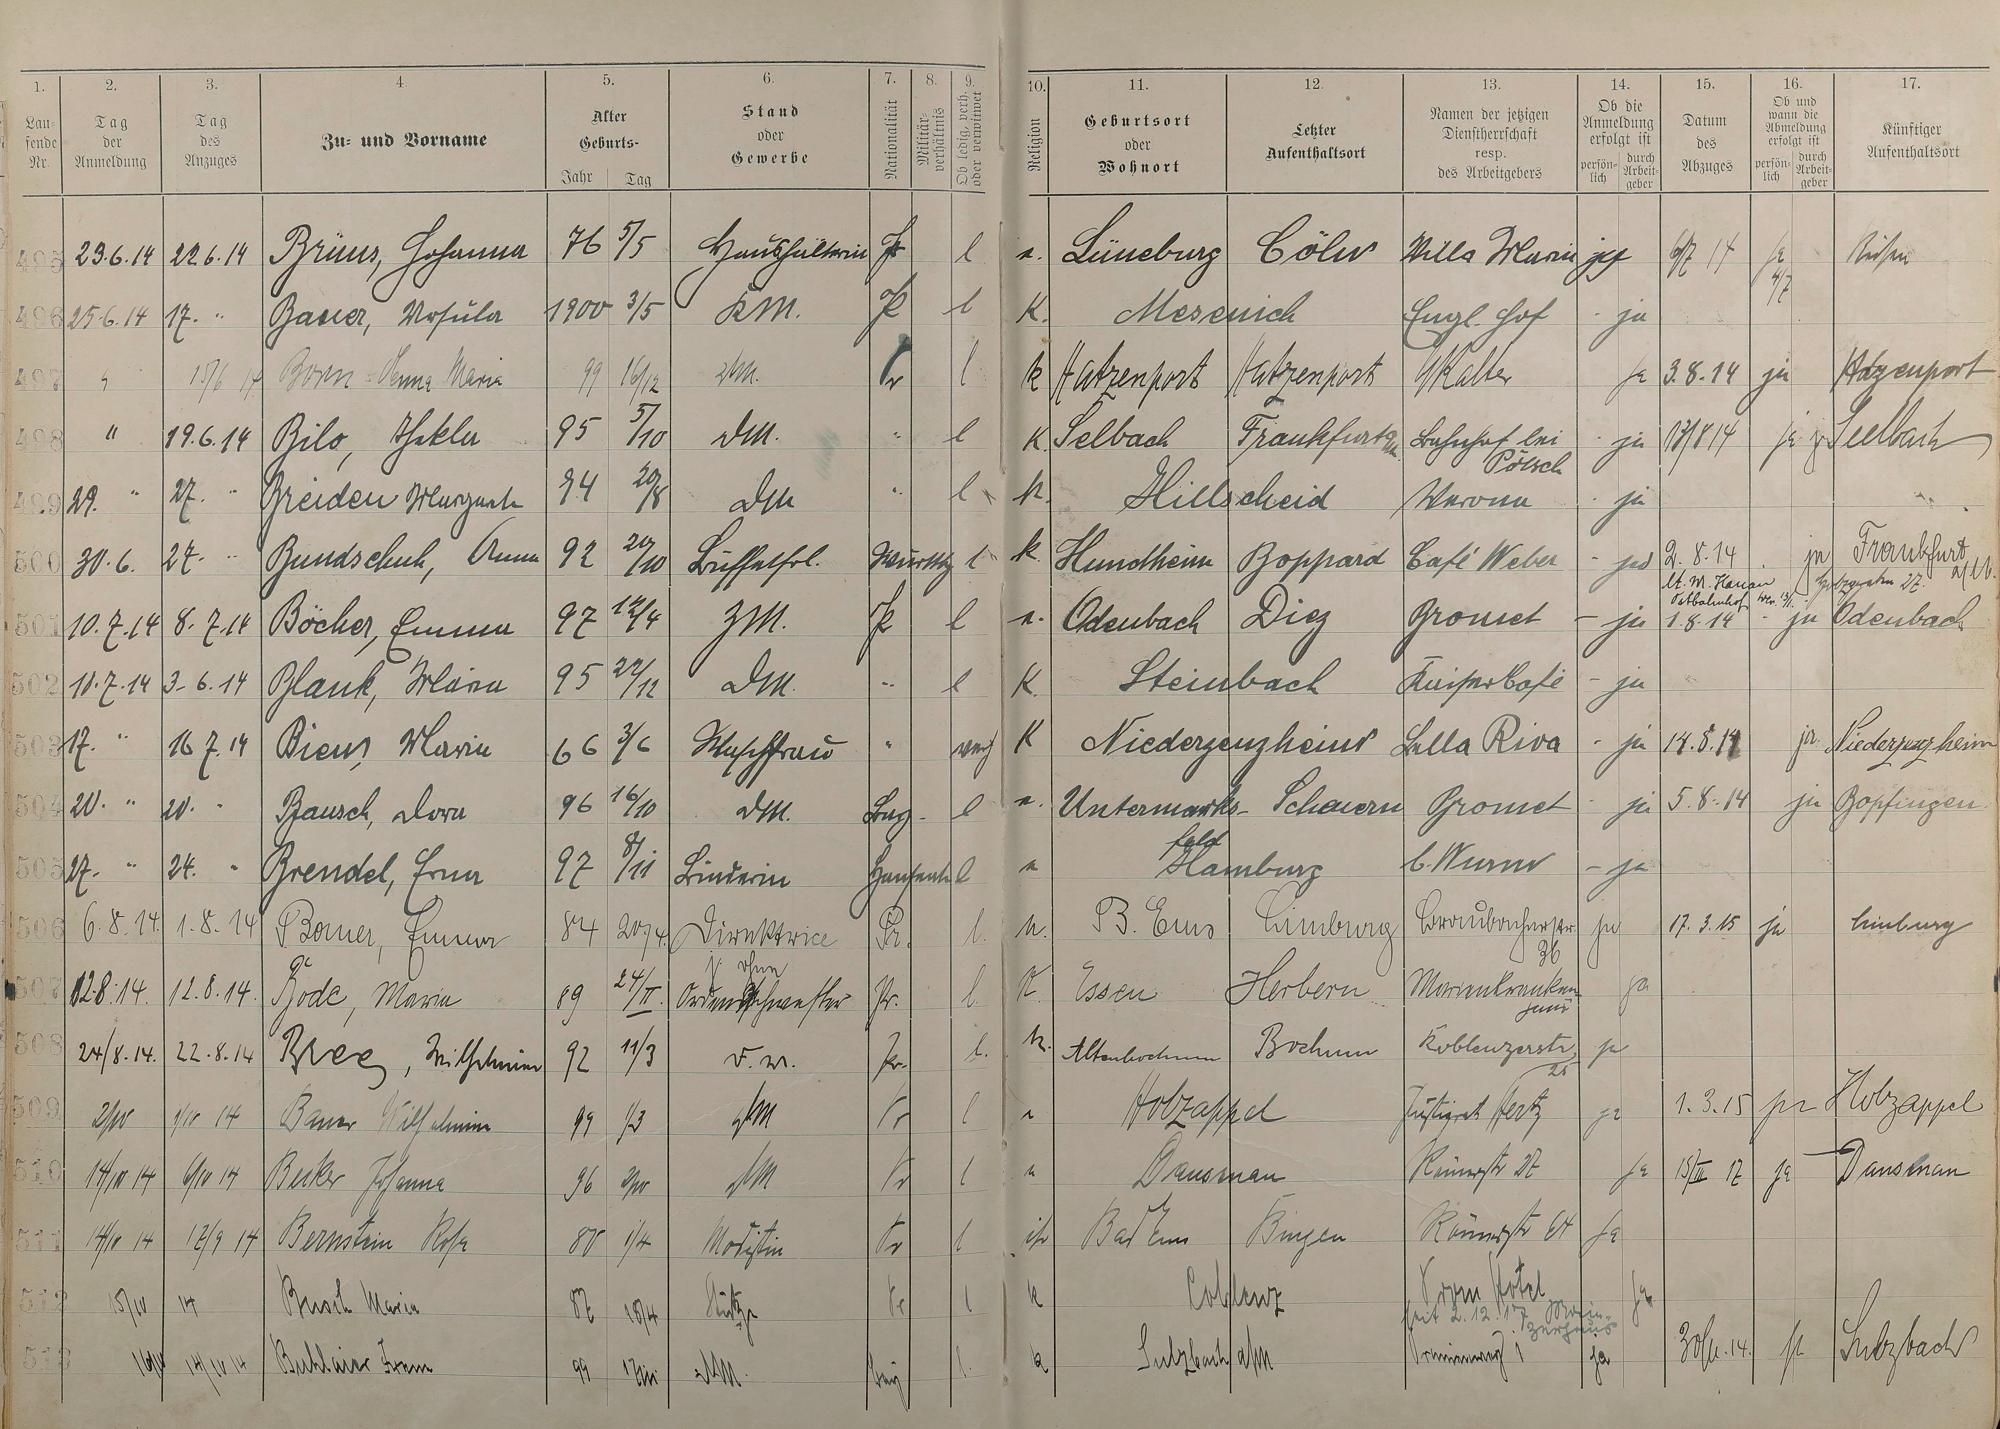 1. 2. 3. 4 5. 6. 7. 8. 9. 10. 11. 12. 13. 14. 15. 16. 17.
Lau-
fende
Nr.
Tag
der
Anmeldung
Tag
des
Anzuges
Zu- und Vorname
Alter
Geburts-
Jahr Tag
Stand
oder
Gewerbe
Nationalität
Militär-
verhältnis
Ob ledig, verh.
oder verwitwet
Religion
Geburtsort
oder
Wohnort
Letzter
Aufenthaltsort
Namen der jetzigen
Dienstherrschaft
resp.
des Arbeitgebers
Ob die
Anmeldung
erfolgt ist
persön-
lich
durch
Arbeit-
geber
Datum
des
Abzuges
Ob und
wann die
Abmeldung
erfolgt ist
persön-
lich
durch
Arbeit-
geber
Künftiger
Aufenthaltsort
495 23.6.14 22.6.14 Brüns, Johanna 76 5/5 Haushälterin Pr l a. Lüneburg Cöln Villa Maria 6/7 14 ja
4/7
496 25.6.14 17. " Bauer, Ursula 1900 3/5 KM. Pr l K. Mesenich Engl. Hof - ja
497 " 15/6 14 Born Anna Maria 99 16/12 DM. Pr l k Hatzenport Hatzenport Kalter ja 3.8.14 ja Hatzenport
498 " 19.6.14 Bilo, Thekla 95 5/10 DM. " l K. Selbach Frankfurt a/M. Bahnhof bei
Pötsch - ja 17/8 14 ja Seelbach
499 29. " 27. " Breiden Margareta 94 20/8 DM " l k. Hillscheid Verona - ja
500 30.6. 27. " Bundschuh, Anna 92 20/10 Büffetfrl. Württbg l k. Hundheim Boppard Café Weber - ja 2.8.14 ja Frankfurt
a/M.
lt. M. Hanau
Ostbahnhof
501 10.7.14 8.7.14 Böcher, Emma 97 12/4 ZM. Pr l a. Odenbach Diez Bromet - ja 1.8.14 - ja Odenbach
502 10.7.14 3.6.14 Blank, Maria 95 22/12 DM. " l K. Steinbach Kaiser Café - ja
503 17. " 16 7.14 Biens, Maria 66 3/6 Waschfrau " K Niederzeuzheim Bella Riva - ja 14.8.14 ja Niederzeuzheim
504 20. " 20. " Bausch, Dora 96 16/10 DM. Bay. l a. Untermarks-
feld Schauern Bromet - ja 5.8.14 ja Bopfingen
505 27. " 24. " Brendel, Erna 97 8/11 Binderin l a Hamburg C. Wurm - ja
506 6.8.14. 1.8.14 Emma 84 20/4. Direktrice Pr. l. B. Ems Limburg Braubacherstr.
36 ja 17.3.15 ja Limburg
507 12.8.14. 12.8.14. Bode, Maria 89 24/II. Ordensschwester
Pr. l. K. Essen Herbern Marienkranken
haus ja
508 24/8.14. 22.8.14 Bree, Wilhelmine 92 11/3 Pr. l. Altenbochum Bochum Koblenzerstr.
25 ja
509 1/10 14 Bauer Wilhelmine 99 1/3 DM Pr l a Holzappel Justizrat Hertz ja 1.3.15 Holzappel
510 14/10 14 6/10 14 Becker Johanna 96 DM Pr l a Dausenau Römerstr 27 ja 15/III 17 ja Dausenau
511 14/10 14 17/9 14 Bernstein Rosa 88 1/4 Modistin Pr l isr Bad Ems Bingen Römerstr 64 ja
512 15/10 14 Busch Maria 87 18/4 Stütze Pr l k Coblenz Hotel ja
seit 2.12.17 Main-
zerhaus
513 14/10 14 Irene 99 DM. l. k Sulzbach a/M ja 14. Sulzbach